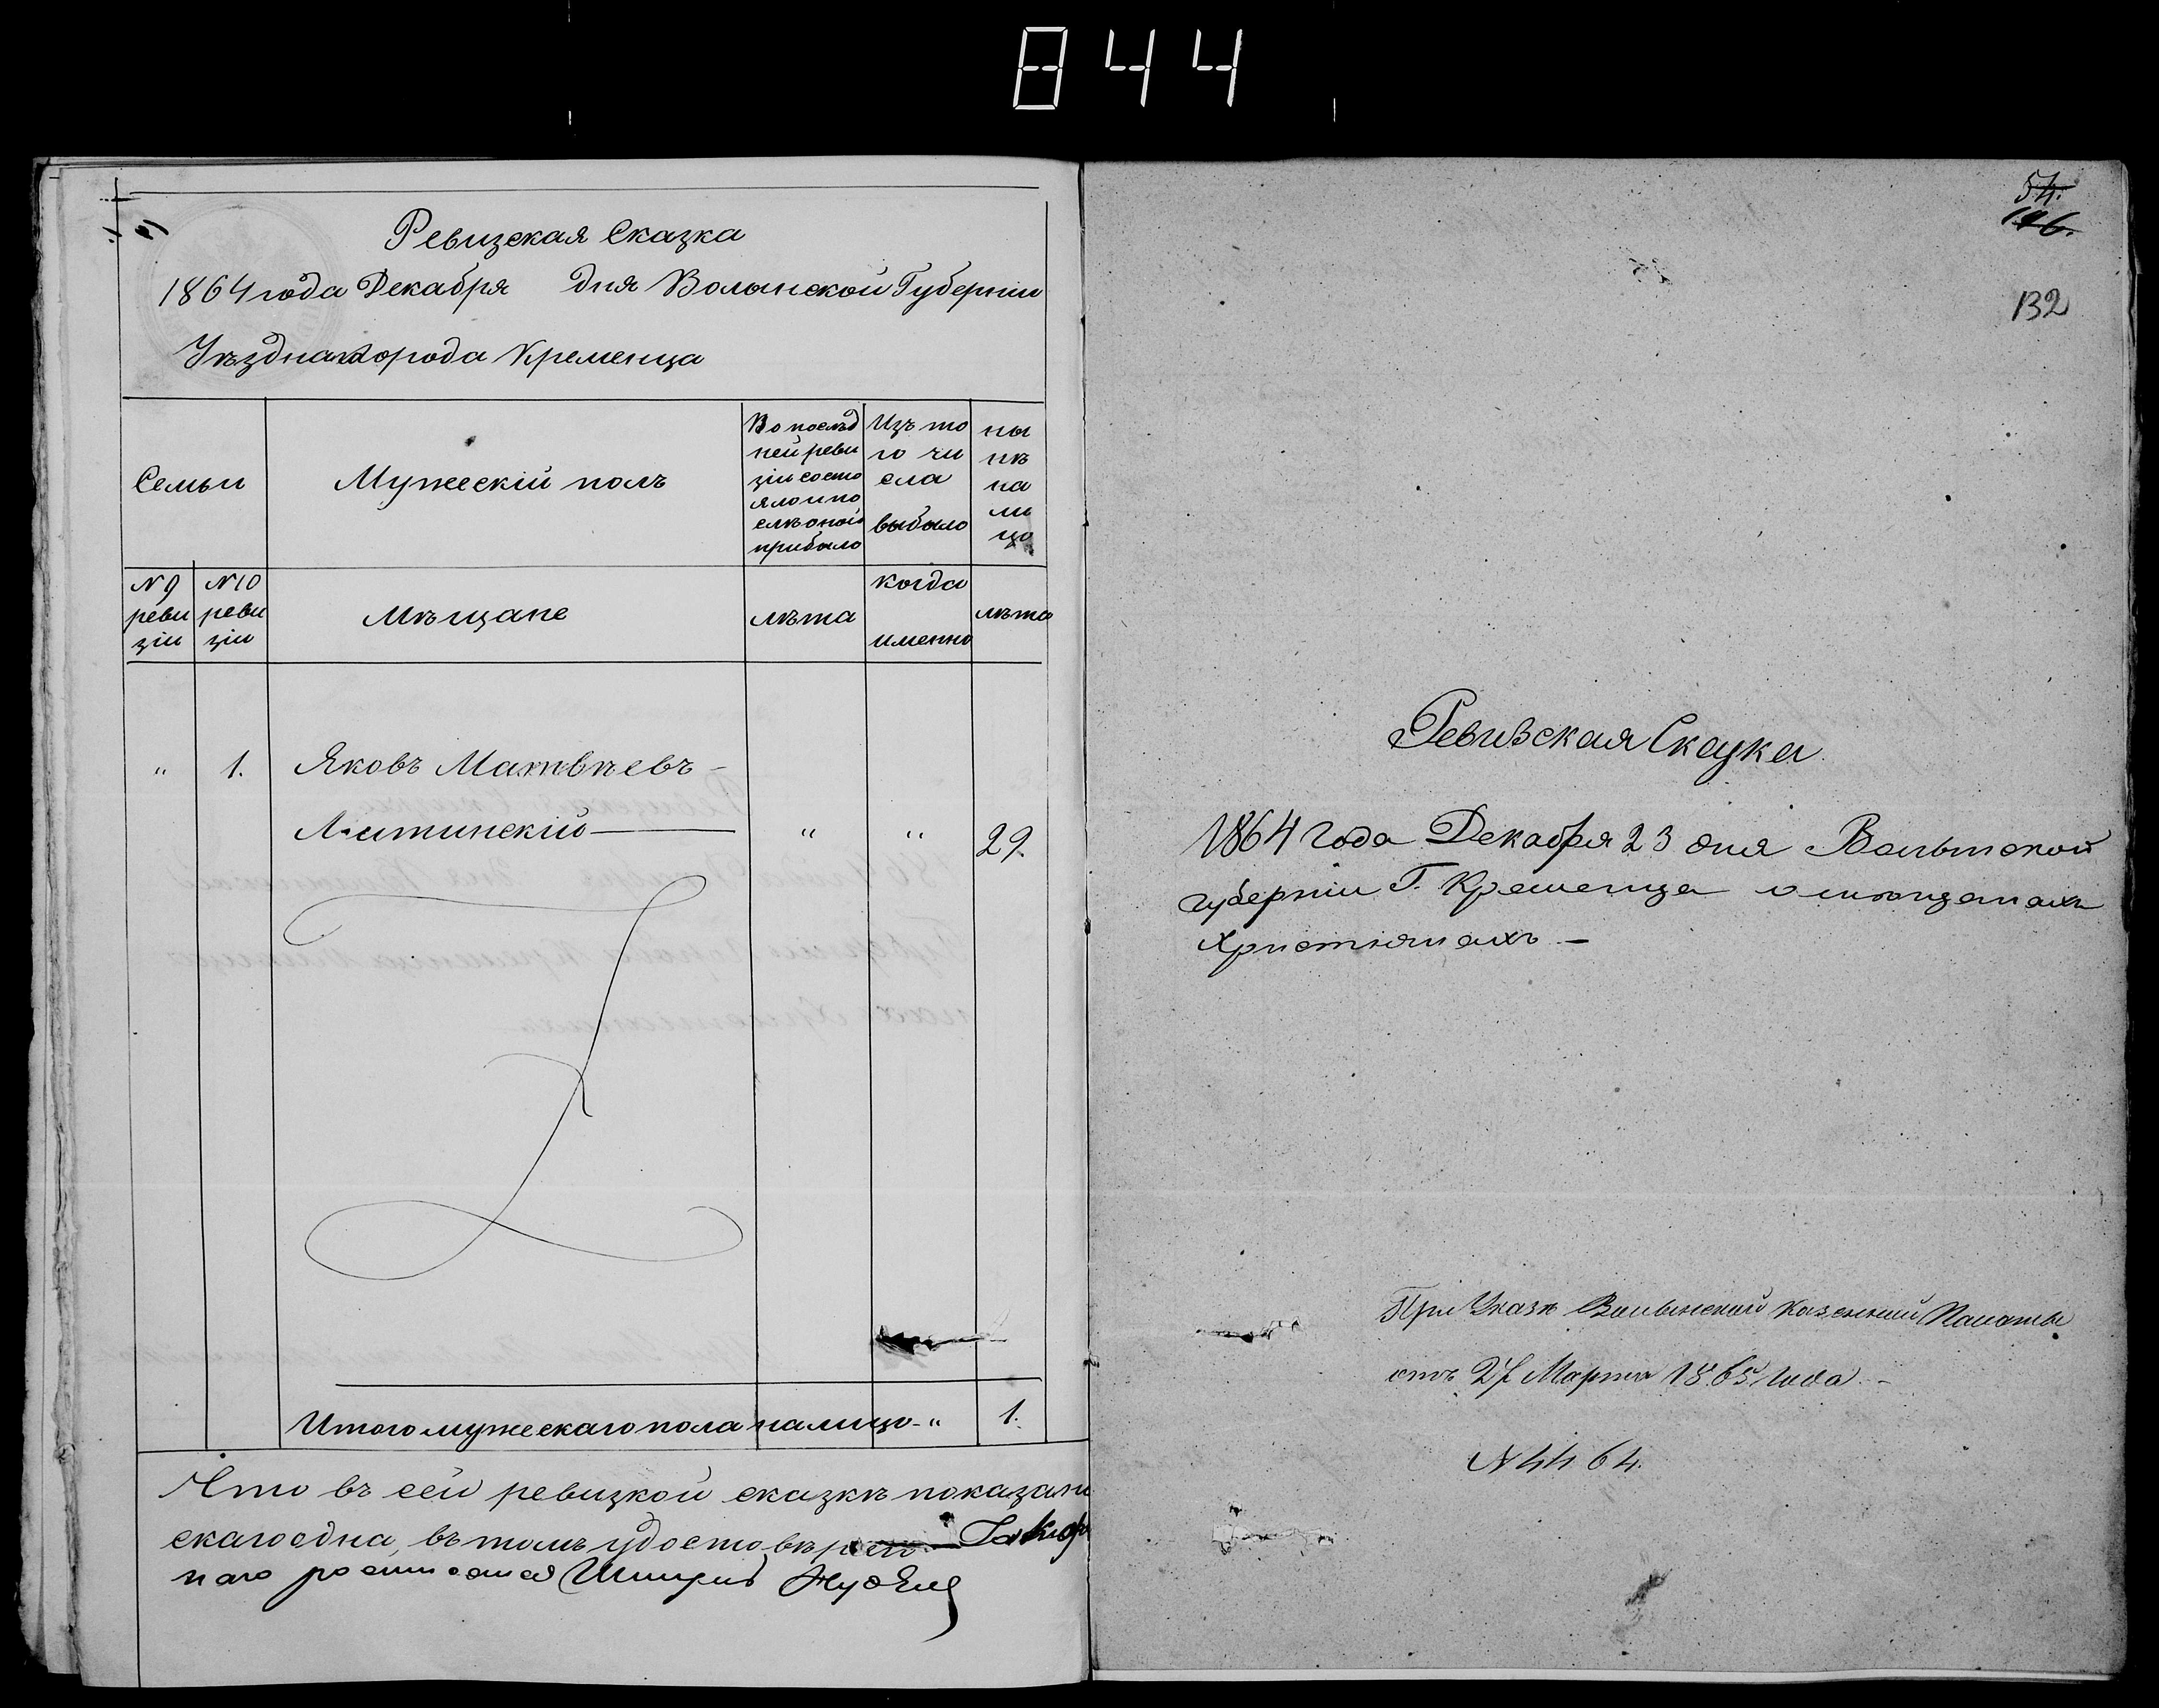 844
Ревизская Сказка
1864 года Декабря дня Волынской Губернии
Уѣзднаго города Кременца
Семьи
Мужескій полъ
Во послѣд
ней реви
зіи состо
яло и по
слѣ оной
прибыло
Изъ то
го чи
сла
выбыло
ны
нѣ
на
ли
цо
N 9
реви
зіи
N 10
реви
зіи
Мѣщане
лѣта
когда
именно
лѣта
" 1. Яковъ Матвѣевъ
скій " " 29.
Итого мужескаго пола налицо " 1.
Что въ сей ревизкой сказкѣ показан
скаго одна, въ томъ удостовѣряю
54.
132
Ревизская Сказка
1864 года Декабря 23 дня Волынской
губерніи Г. Кременца о мѣщанахъ
Христіянахъ. —
При Указѣ Волынской Казенной Палаты
отъ Марта 1865 года. -
N 4464.